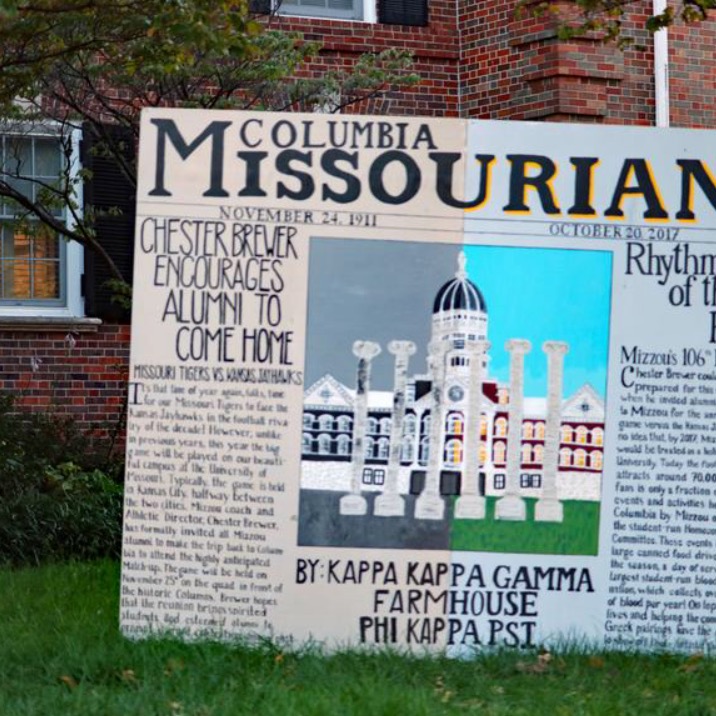 COLUMBIA
MISSOURIAN
NOVEMBER 24, 1911
OCTOBER 20, 2017
CHESTER BREWER
ENCOURAGES
ALUMNI TO
COME HOME
MISSOURI TIGERS VS. KANSAS JAYHAWKS
It's that time of year again, folks, time
for our Missouri Tigers to face the
Kansas Jayhawks in the football riva-
lry of the decade! However, unlike
in previous years, this year the big
game will be played on our beauti-
ful campus at the University of
Missouri. Typically, the game is held
in Kansas City, halfway between
the two cities. Mizzou coach and
Athletic Director, Chester Brewer,
has formally invited all Mizzou
alumni to make the trip back to Colum-
bia to attend the highly anticipated
Match-up. The game will be held on
November 25th on the quad in front of
the historic Columns. Brewer hopes
that the reunion brings spirited
students and
BY: KAPPA KAPPA GAMMA
FARMHOUSE
PHI KAPPA PSI
Rhythm
of th
Mizzou's 106th
Chester Brewer coul
prepared for this
when he invited alumn
to Mizzou for the
game versus the Kansas J
no idea that, by 2017, Miz
would be treated as a
University. Today the
attracts around 70,00
fans is only a fraction
events and activities
Columbia by Mizzou
the student-run Homeco
Committee. These events
large canned food driv
the season, a day of serv
largest student-run blood
which collects
of blood per year! On top
lives and helping the com
Greek pairings have the